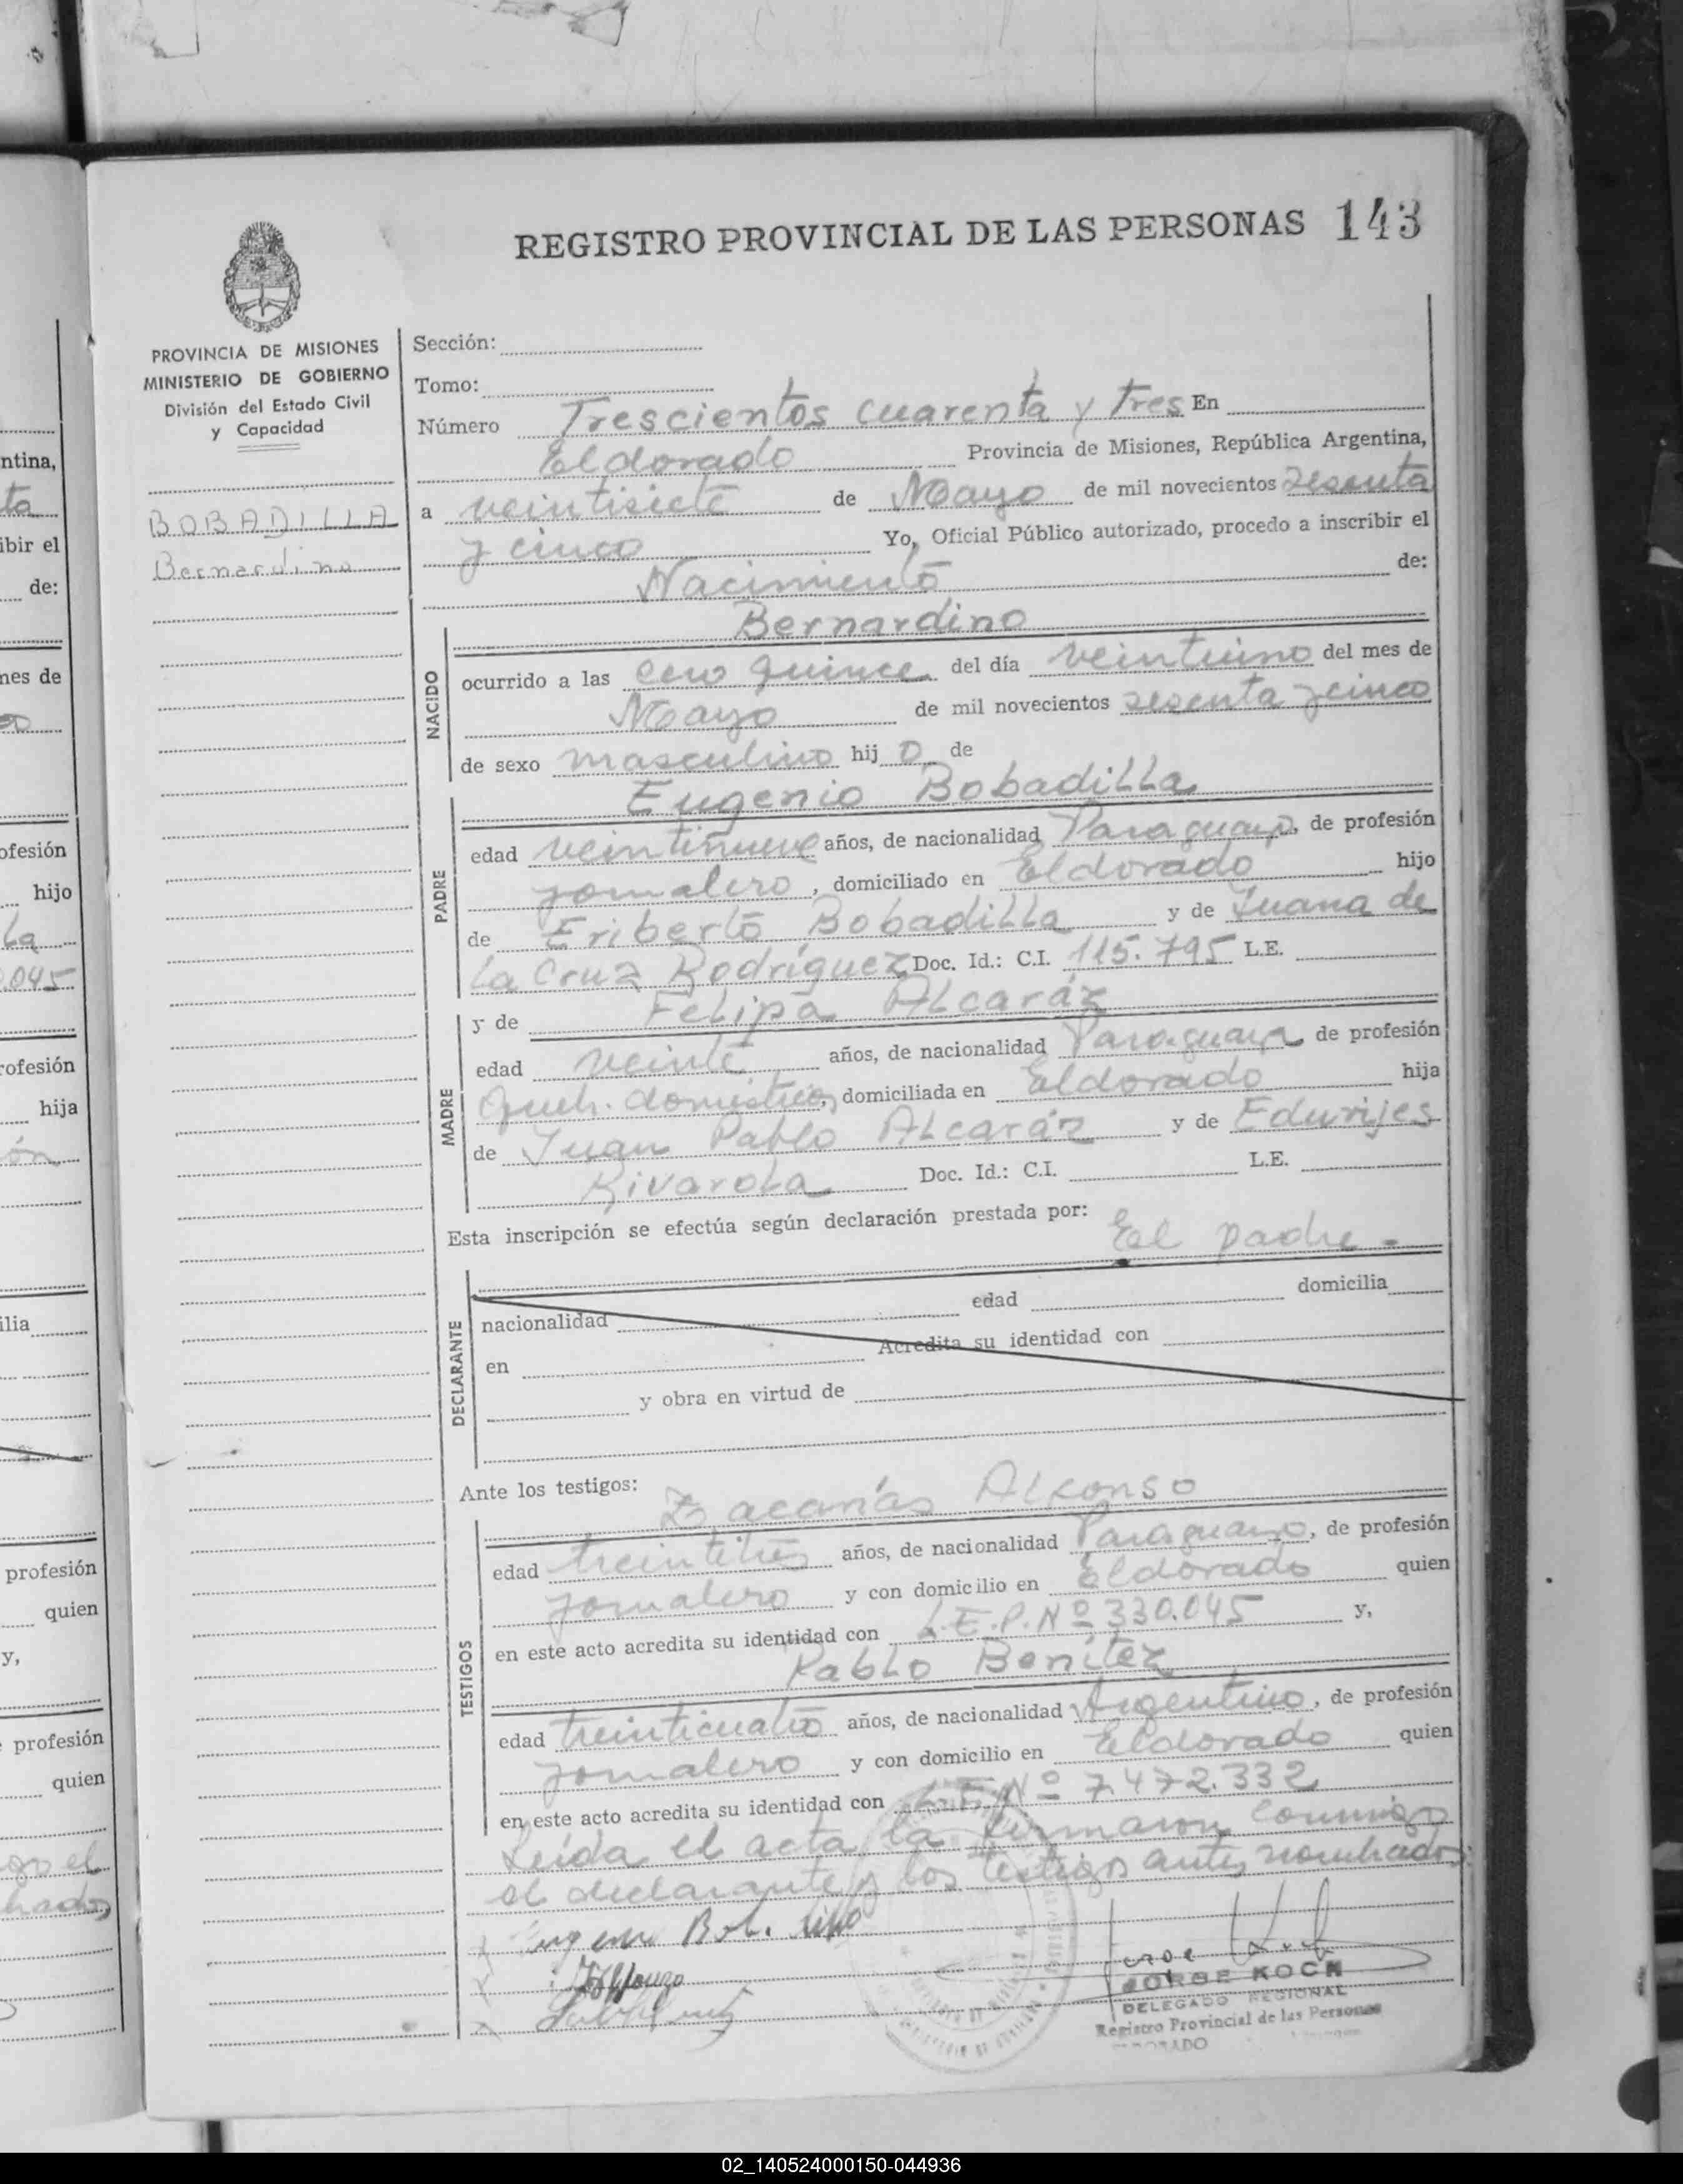 REGISTRO PROVINCIAL DE LAS PERSONAS 143
PROVINCIA DE MISIONES
MINISTERIO DE GOBIERNO
División del Estado Civil
y Capacidad
BOBADILLA
Bernardino
Sección:
Tomo:
Número Trescientos cuarenta y tres En
Eldorado Provincia de Misiones, República Argentina,
a veintisiete de Mayo de mil novecientos sesenta
y cinco Yo, Oficial Público autorizado, procedo a inscribir el
Nacimiento de:
NACIDO
Bernardino
ocurrido a las cero quince del día veintiuno del mes de
Mayo de mil novecientos sesenta y cinco
de sexo masculino hij o de
PADRE
Eugenio Bobadilla
edad veintinueve años, de nacionalidad Paraguaya, de profesión
jornalero, domiciliado en Eldorado hijo
de Eriberto Bobadilla y de Juana de
la Cruz Rodríguez Doc. Id.: C.I. 115.795 L.E.
MADRE
y de Felipa Alcaráz
edad veinte años, de nacionalidad Paraguaya de profesión
queh. domésticos, domiciliada en Eldorado hija
de Juan Pablo Alcaráz y de Eduvijes
Rivarola Doc. Id.: C.I. L.E.
Esta inscripción se efectúa según declaración prestada por:
El padre.-
DECLARANTE
nacionalidad edad domicilia
en Acredita su identidad con
y obra en virtud de
Ante los testigos:
TESTIGOS
Zacarías Alfonso
edad treintitrés años, de nacionalidad Paraguayo, de profesión
jornalero y con domicilio en Eldorado quien
en este acto acredita su identidad con L.E.P.Nº 330.045 y,
Pablo Benítez
edad treinticuatro años, de nacionalidad Argentino, de profesión
jornalero y con domicilio en Eldorado quien
en este acto acredita su identidad con L.E.Nº 7.472.332
Leída el acta la firmaron conmigo
el declarante y los testigos antes nombrados
JORGE KOCH
DELEGADO REGIONAL
Registro Provincial de las Personas
ntina,
ta
ibir el
de:
nes de
ofesión
hijo
la
.045
rofesión
hija
ón
ilia
profesión
quien
y,
profesión
quien
02_140524000150-044936